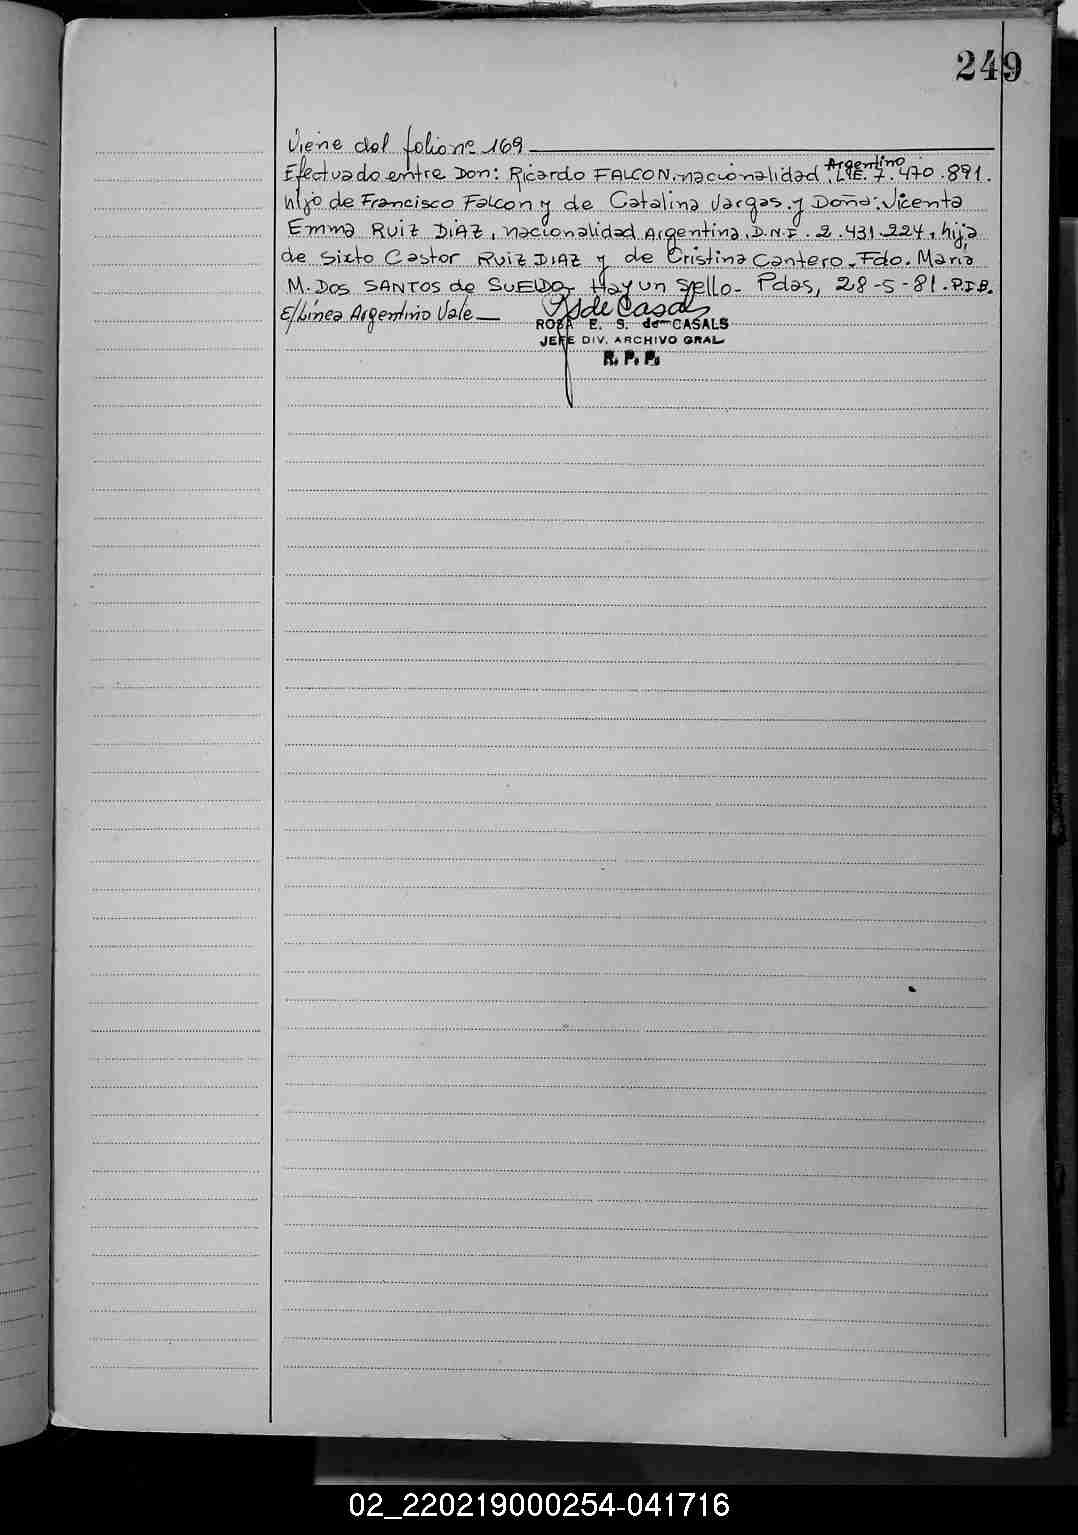 249
Viene del folio nº 169
Argentino
Efectuado entre Don: Ricardo FALCON, nacionalidad L.E. 7.470.891.
hijo de Francisco Falcon y de Catalina Vargas. y Doña: Vicenta
Emma RUIZ DIAZ, nacionalidad Argentina, D.N.I. 2.431.224, hija
de Sixto Castor RUIZ DIAZ y de Cristina Cantero. Fdo. Maria
M. Dos SANTOS de SUELDO- Hay un sello- Pdas, 28-5-81.P.I.B.
E/Línea Argentino Vale
ROSA E. S. de CASALS
JEFE DIV. ARCHIVO GRAL
R. P. P.
02_220219000254-041716